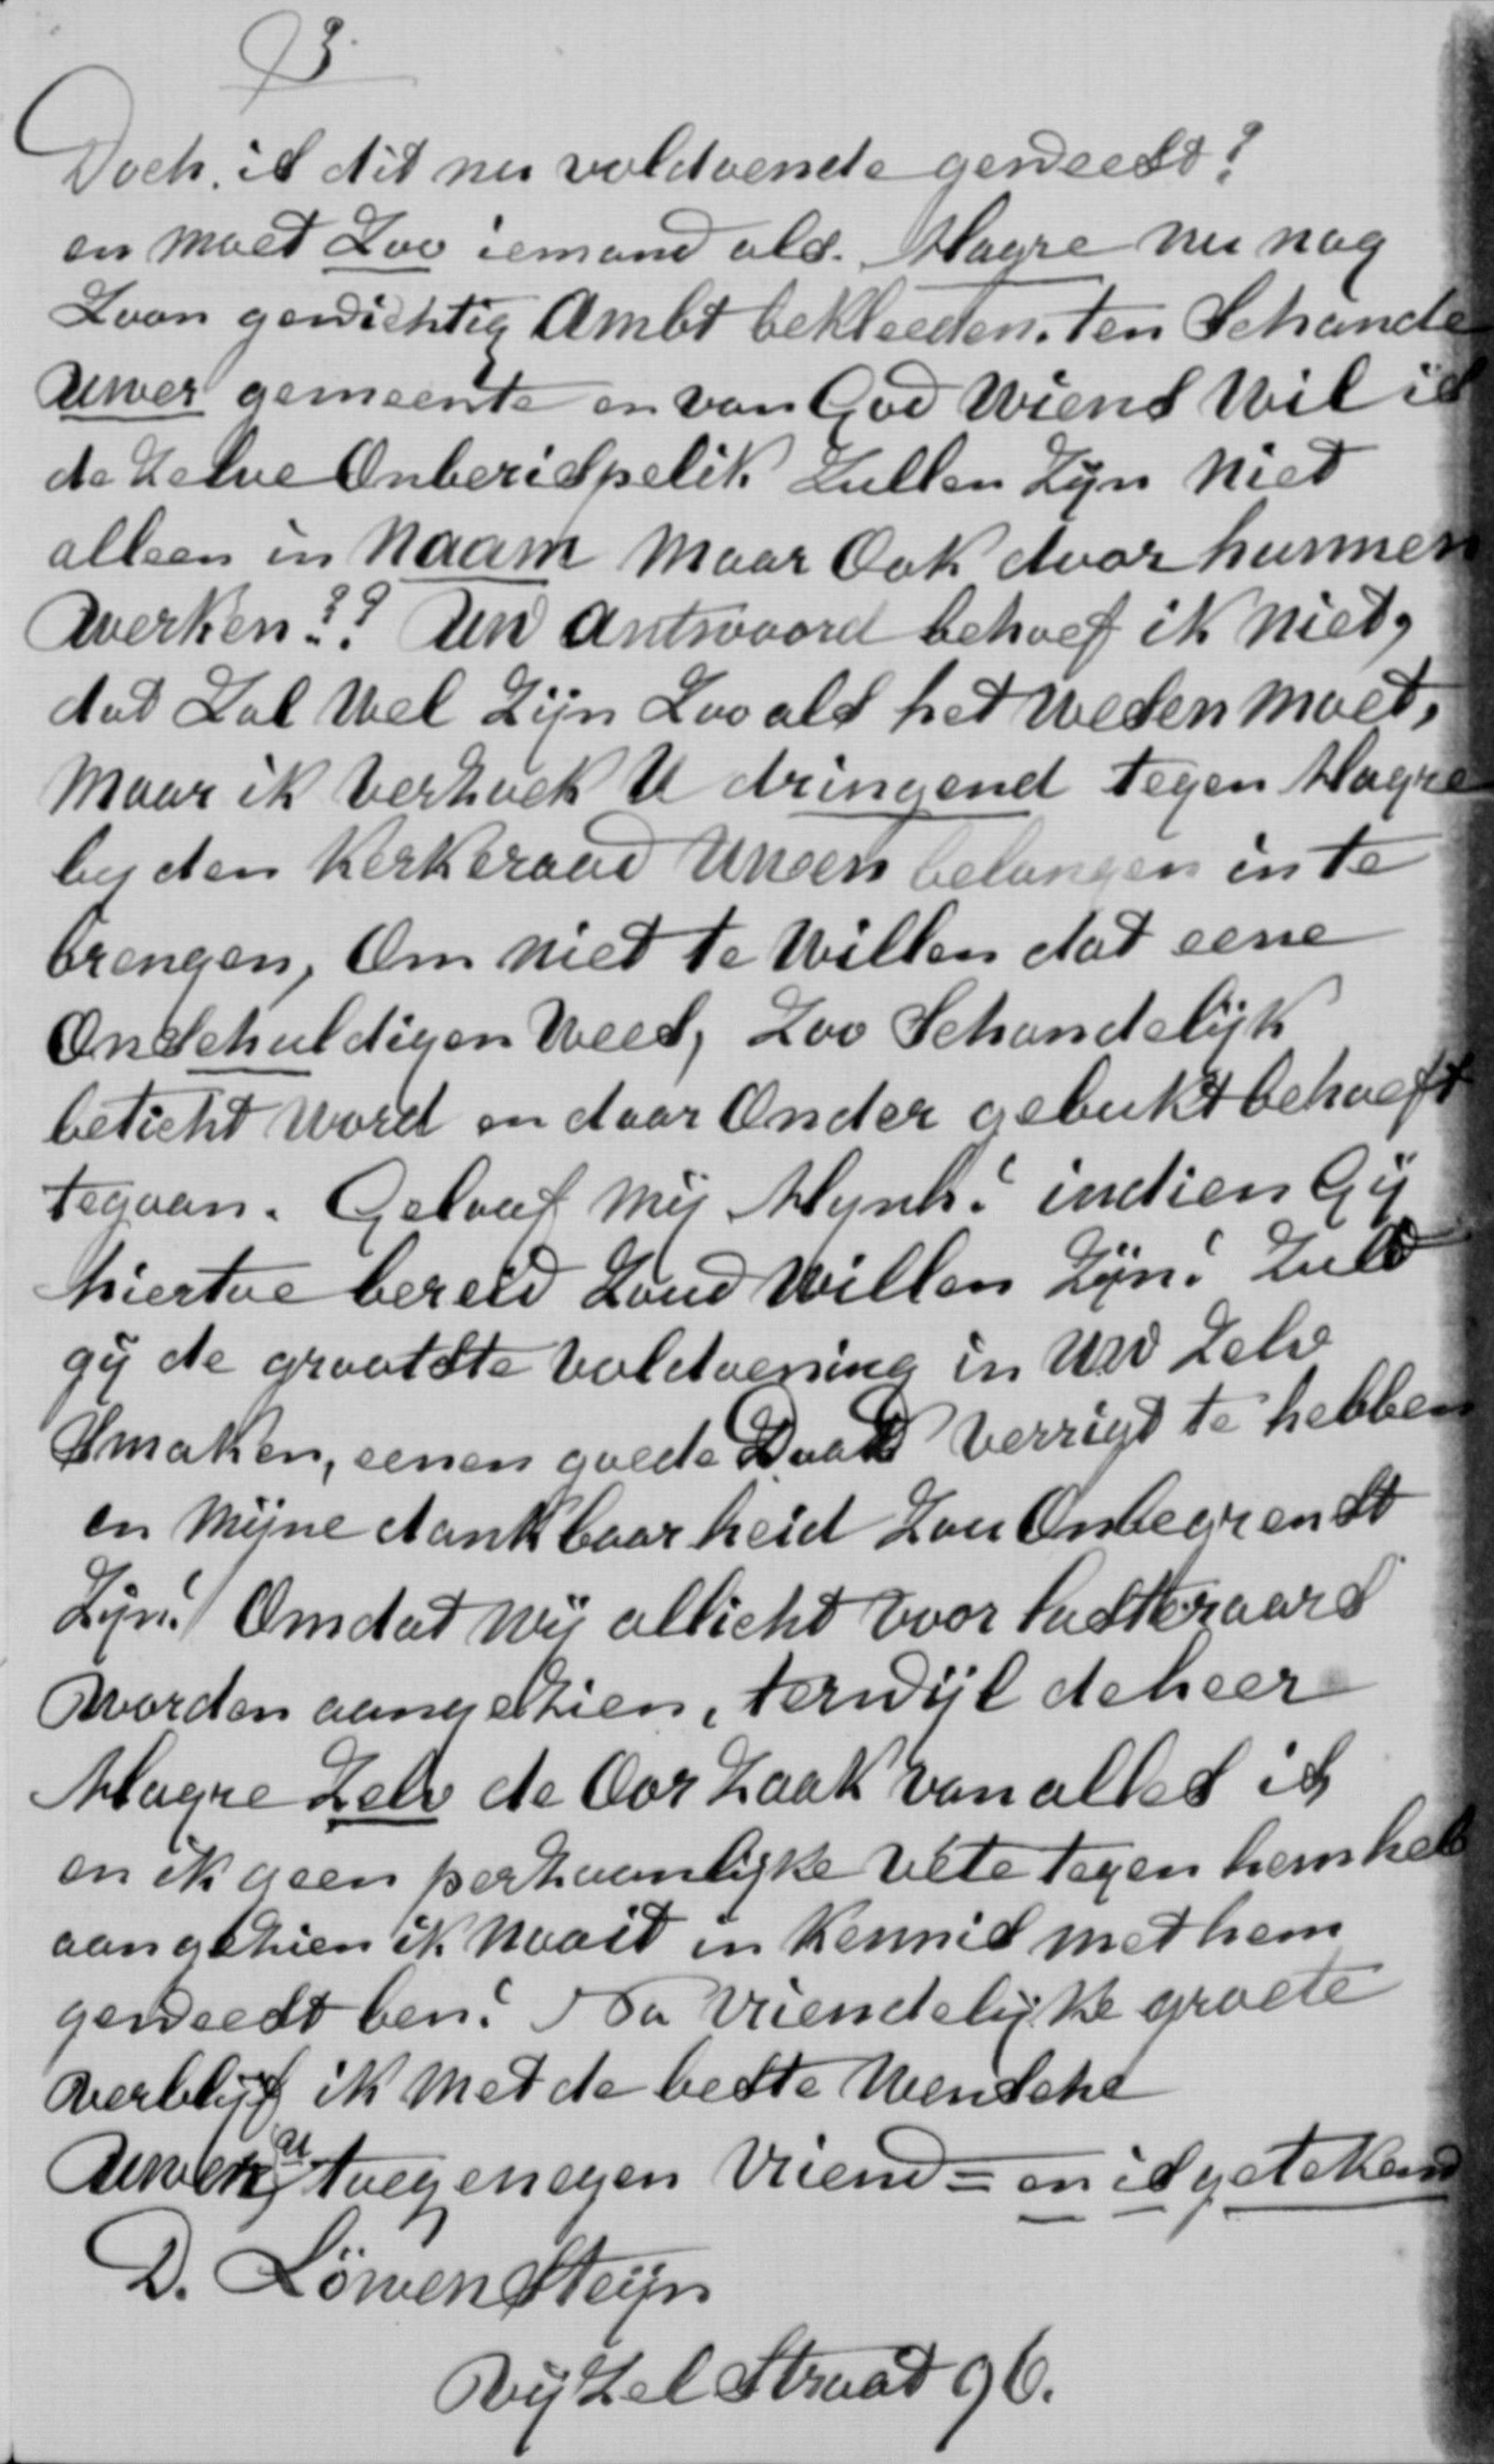 3.
Doch. is dit nu voldoende geweest?
en moet Zoo iemand als. Magre nu nog
Zoon gewichtig Ambt bekleeden. ten Schande
uwer gemeente en van God Wiens Wil is
de Zelve Onberispelik Zullen Zijn Niet
alleen in Naam Maar Ook door hunnen
werken?? Uw Antwoord behoef ik Niet,
dat Zal Wel Zijn Zooals het Wesen Moet,
Maar ik VerZoek U dringend tegen Magre
by den Kerkeraad Uwsen belangen in te
brengen, Om Niet te Willen dat eene
Onschuldigen Wees, Zoo Schandelijk
beticht Word en daar Onder gebukt behoeft
tegaan. Geloof Mij Mynh! indien Gij
hiertoe bereid Zoud Willen Zijn! Zult
gij de grootste Voldoening in Uw Zelv
Smaken, eenen goede Daad Verrigt te hebben
en Mijne dankbaarheid Zou Onbegrenst
Zijn! Omdat Wij allicht Voor lasteraars
Worden aangeZien, terwijl de heer
Magre Zelv de OorZaak Van alles is
en ik geen perZoonlijke Vete tegen hem heb
aangeZien ik Nooit in Kennis Met hem
geweest ben! Na Vriendelijke groete
Verblijf ik Met de beste Wensche
Uwen U toegenegen Vriend = en is getekend
D. Löwensteijn
VijZelStraat 96.